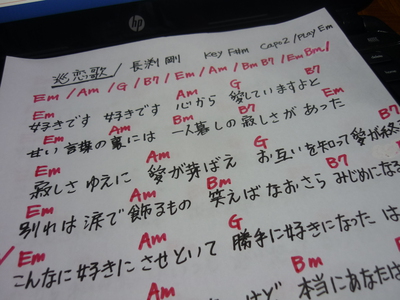 hp
巡恋歌 / 長渕 剛 Key F#m Capo2 / Play Em
Em / Am / G / B7 / Em / Am / Bm B7 / Em Bm /
Em Am G B7
好きです 好きです 心から 愛していますよと
Em Am Bm B7
甘い 言葉の裏には 一人暮しの 寂しさが あった
Em Am G B7
寂しさ ゆえに 愛が芽ばえ お互いを知って 愛が
Em Am Bm B7
別れは 涙で 飾るもの 笑えば なおさら みじめになる
Em Am G
こんなに好きに させといて 勝手に好きになった は
Am Bm B
本当にあなたは